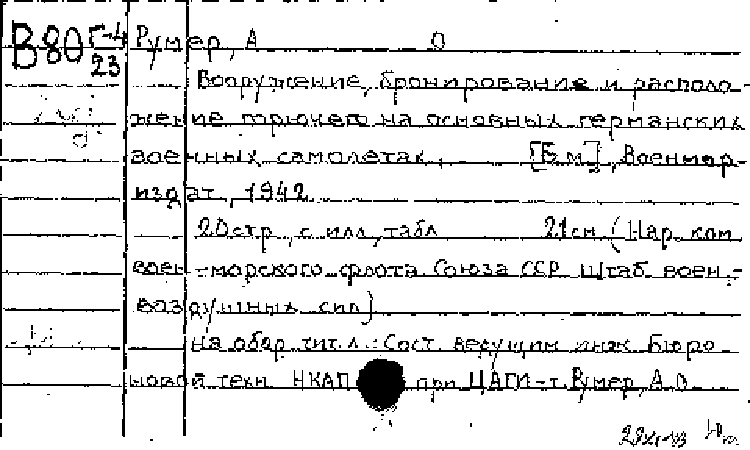 В80 Г-4/23 Румер, А О
Вооружение, бронирование и располо-
жение горючего на основных германских
военных самолетах. [Б.м], Военмор-
издат, 1942.
20стр. с илл, табл 21см. (Нар. ком
воен-морского флота Союза ССР. Штаб воен.-
воздушных сил)
На обор. тит. л.: Сост. ведущим инж. Бюро
новой техн НКАП при ЦАГИ-т. Румер, А.О.